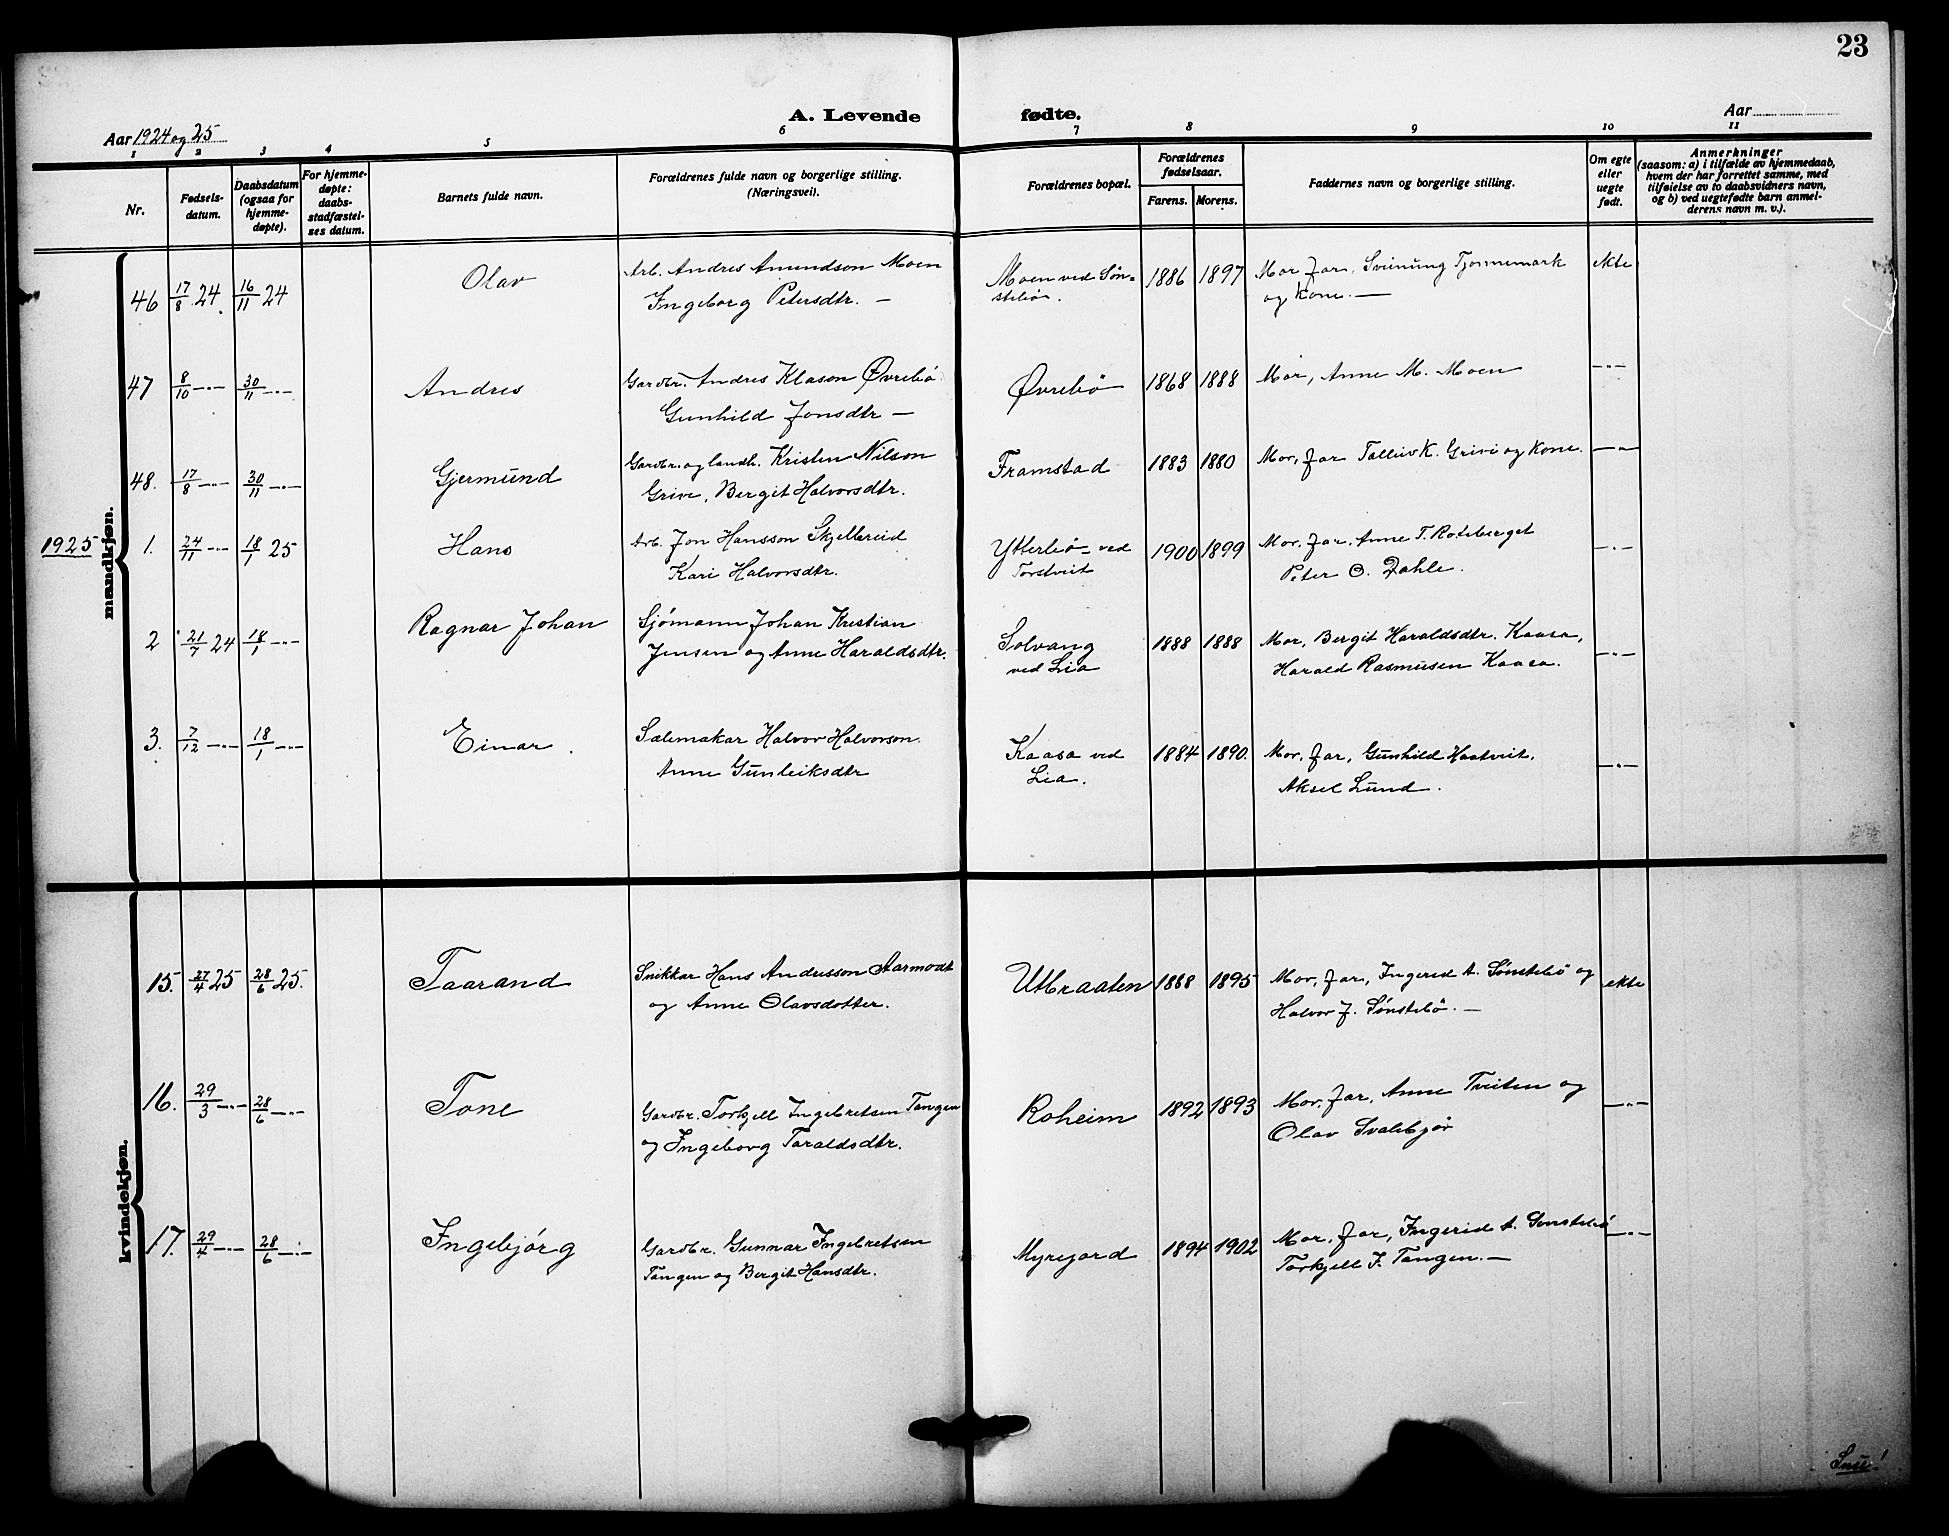 23
Aar 1924 og 25
A. Levende fødte.
Aar
1 2 3 4 5 6 7 8 9 10 11
Nr.
Fødsels-
datum.
Daabsdatum
(ogsaa for
hjemme-
døpte).
For hjemme-
døpte:
daabs-
stadfæstel-
ses datum.
Barnets fulde navn.
Forældrenes fulde navn og borgerlige stilling.
(Næringsvei).
Forældrenes bopæl.
Forældrenes
fødselsaar.
Farens. Morens.
Faddernes navn og borgerlige stilling.
Om egte
eller
uegte
født.
Anmerkninger
(saasom: a) i tilfælde av hjemmedaab,
hvem der har forrettet samme, med
tilføielse av to daabsvidners navn,
og b) ved uegtefødte barn anmel-
derens navn m. v.).
mandkjøn.
46 17/8 24 16/11 24 Olav
Arb. Andres Amundson Moen
Ingeborg Petersdtr. —
Moen ved Søn=
stebø.
1886 1897
Mor far, Sveinung Tjønnemark
og kone. —
ekte
47 8/10 -"- 30/11 -"- Andres
Gardbr. Andres Klason Øvrebø
Gunhild Jonsdtr —
Øvrebø 1868 1888 Mor, Anne M. Moen -"-
48. 17/8 -"- 30/11 -"- Gjermund
Gardbr. og landh. Kristen Nilson
Grive, Bergit Halvorsdtr.
Framstad 1883 1880 Mor, far Talleiv K. Grivi og kone. -"-
1925
1. 24/11 -"- 18/1 25 Hans
Arb. Jon Hansson Skjellereid
Kari Halvorsdtr.
Ytterbø - ved
Torstveit
1900 1899
Mor. far. Anne T. Roteberget
Peter O. Dahle.
-"-
2 21/7 24 18/1 -"- Ragnar Johan
Sjømann Johan Kristian
Jensen og Anne Haraldsdtr.
Solvang
ved Lia
1888 1888
Mor, Bergit Haraldsdtr. Kaasa,
Harald Rasmusen Kaasa.
-"-
3. 7/12 -"- 18/1 -"- Einar.
Salemakar Halvor Halvorson.
Anne Gunleiksdtr
Kaasa ved
Lia.
1884 1890.
Mor, far, Gunhild Haatveit.
Aksel Lund.
-"-
kvindekjøn.
15. 27/4 25 28/6 25. Taarand
Snikkar Hans Andresson Aarmodt
og Anne Olavsdotter.
Utbraaten 1868 1895
Mor, far, Ingerid A. Sønstebø og
Halvor J. Sønstebø. —
ekte
16. 29/3 -"- 28/6 -"- Tone
Gardbr. Torkjell Ingebretsen Tangen
og Ingeborg Taraldsdtr.
Roheim 1892 1893
Mor. far, Anne Tveiten og
Olav Svalebjør
-"-
17. 29/4 -"- 28/6 -"- Ingebjørg
Gardbr. Gunnar Ingebretsen
Tangen og Bergit Hansdtr.
Myrejord 1894 1902
Mor, far, Ingerid A. Sønstebø
Torkjell I. Tangen. —
-"-